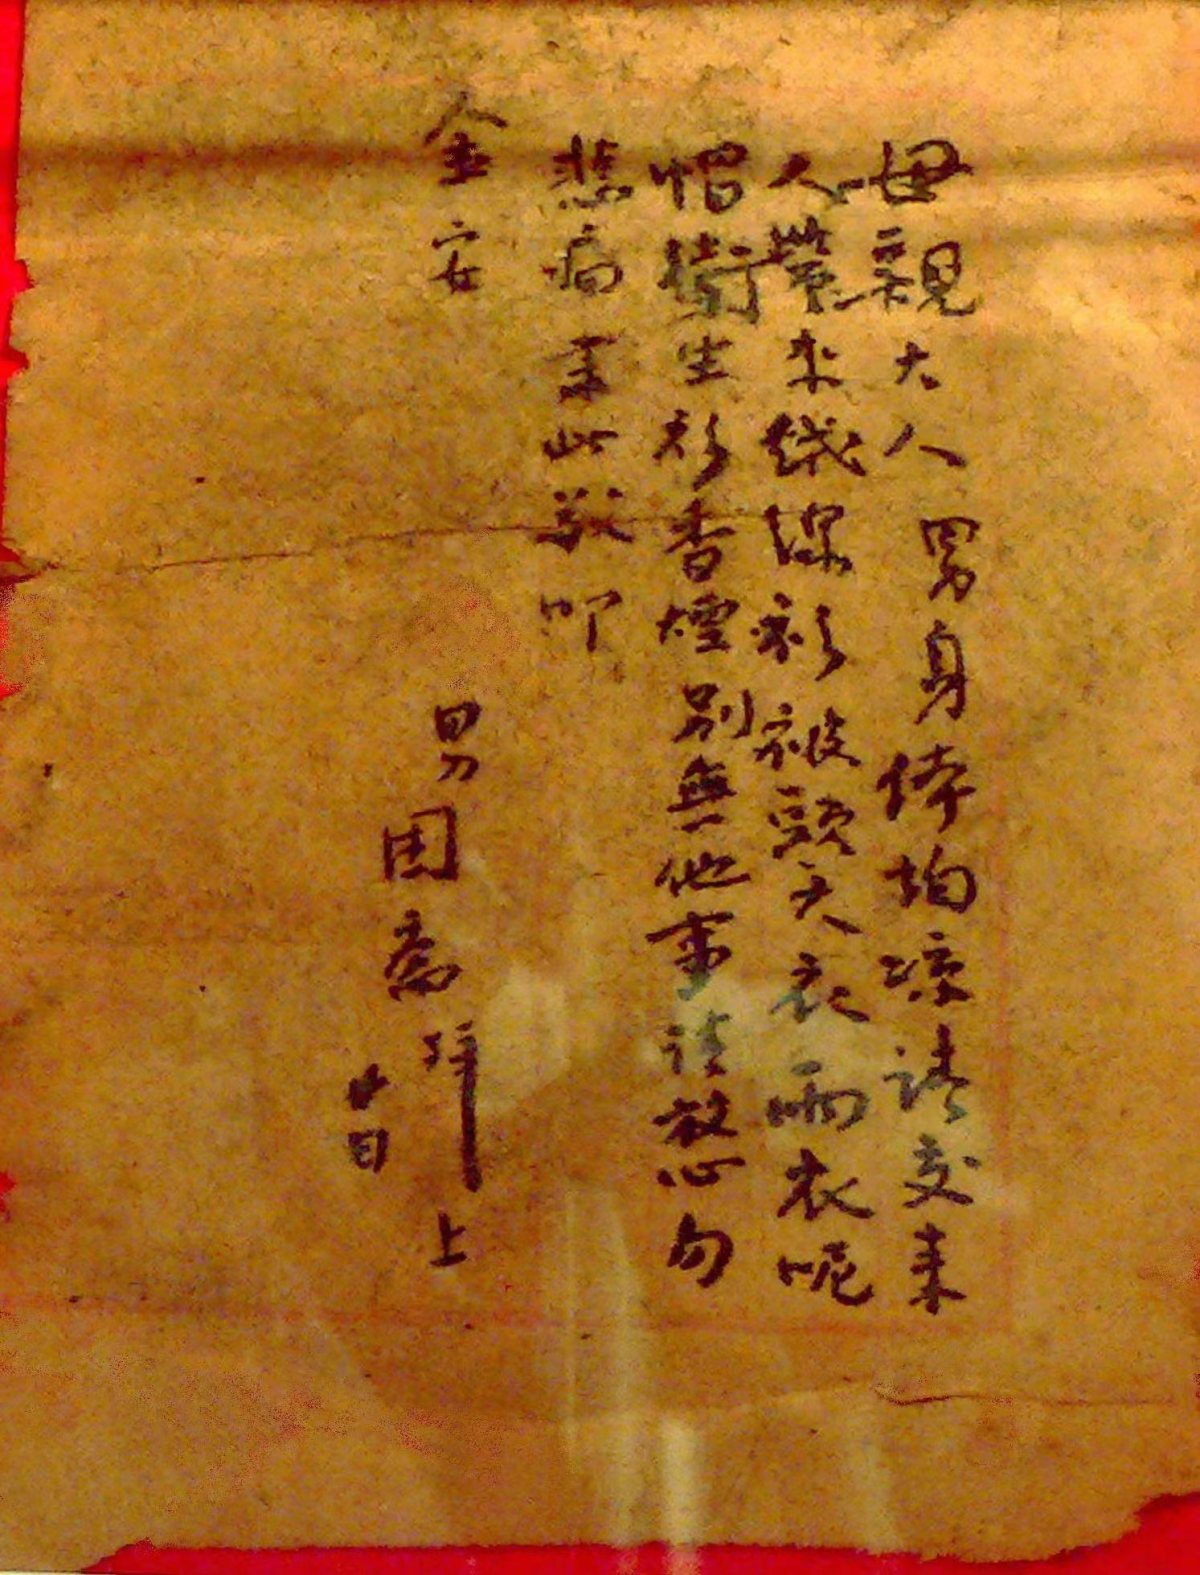 母親大人男身体均凉請交来
人帶来絨線衫被頭大衣雨衣呢
帽衛生衫香煙別無他事請放心勿
悲痛耑此敬叩
金安
男困齋拜上
廿日